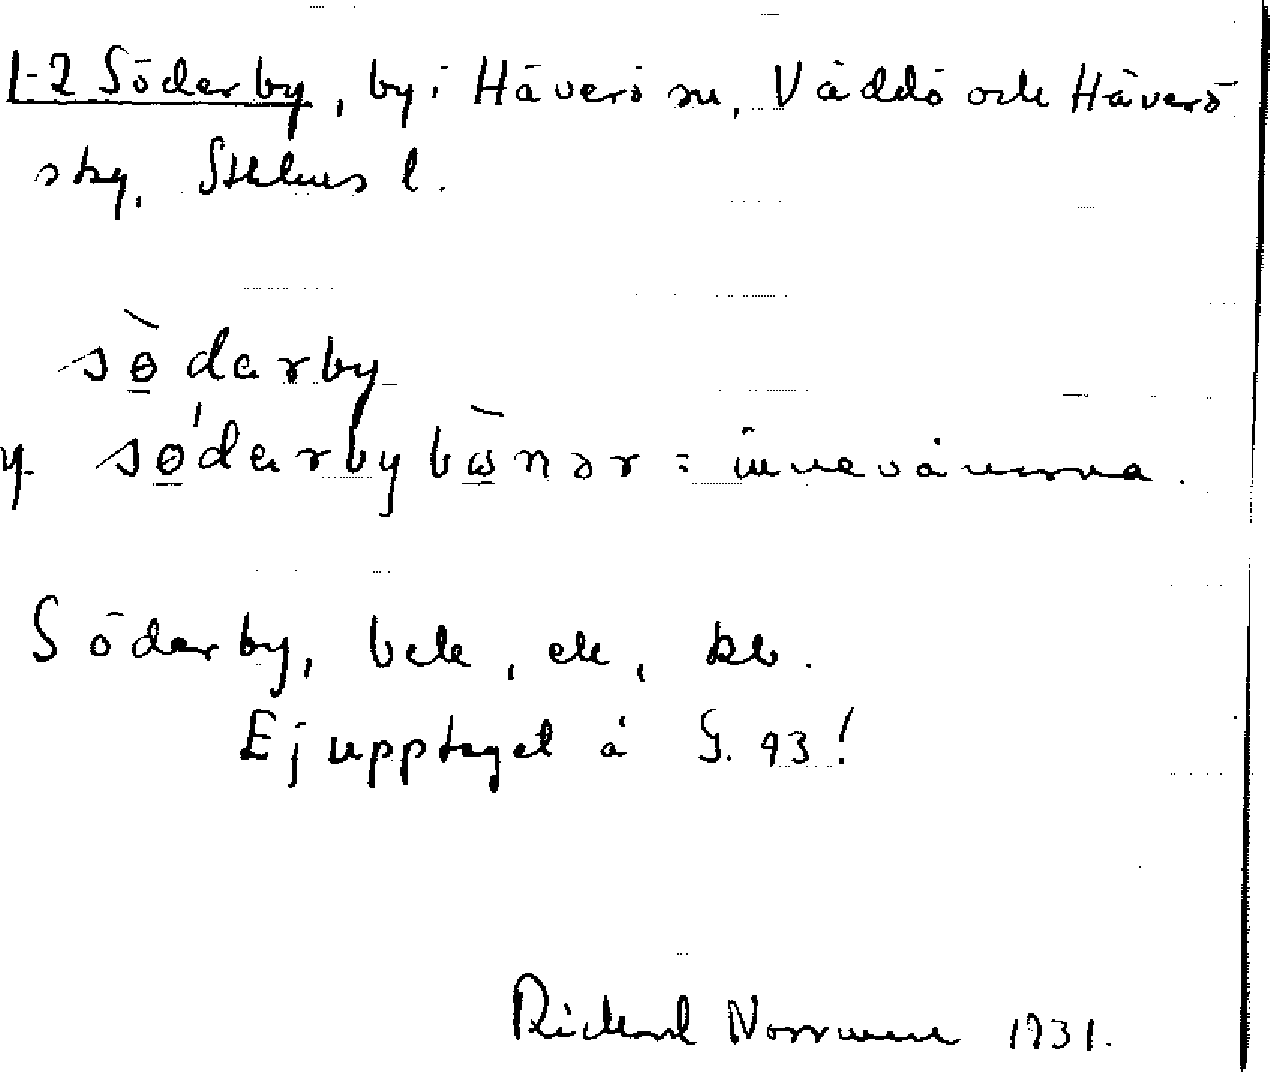 1-2 Söderby, by i Häverö sn, Väddö och Häverö
skg, Sthlms l.
sö̀darby
sö́darbybònər = innevånarna.
Söderby, bek, ek, kb.
Ej upptaget å G. 93!
Rickard Norrman 1931.